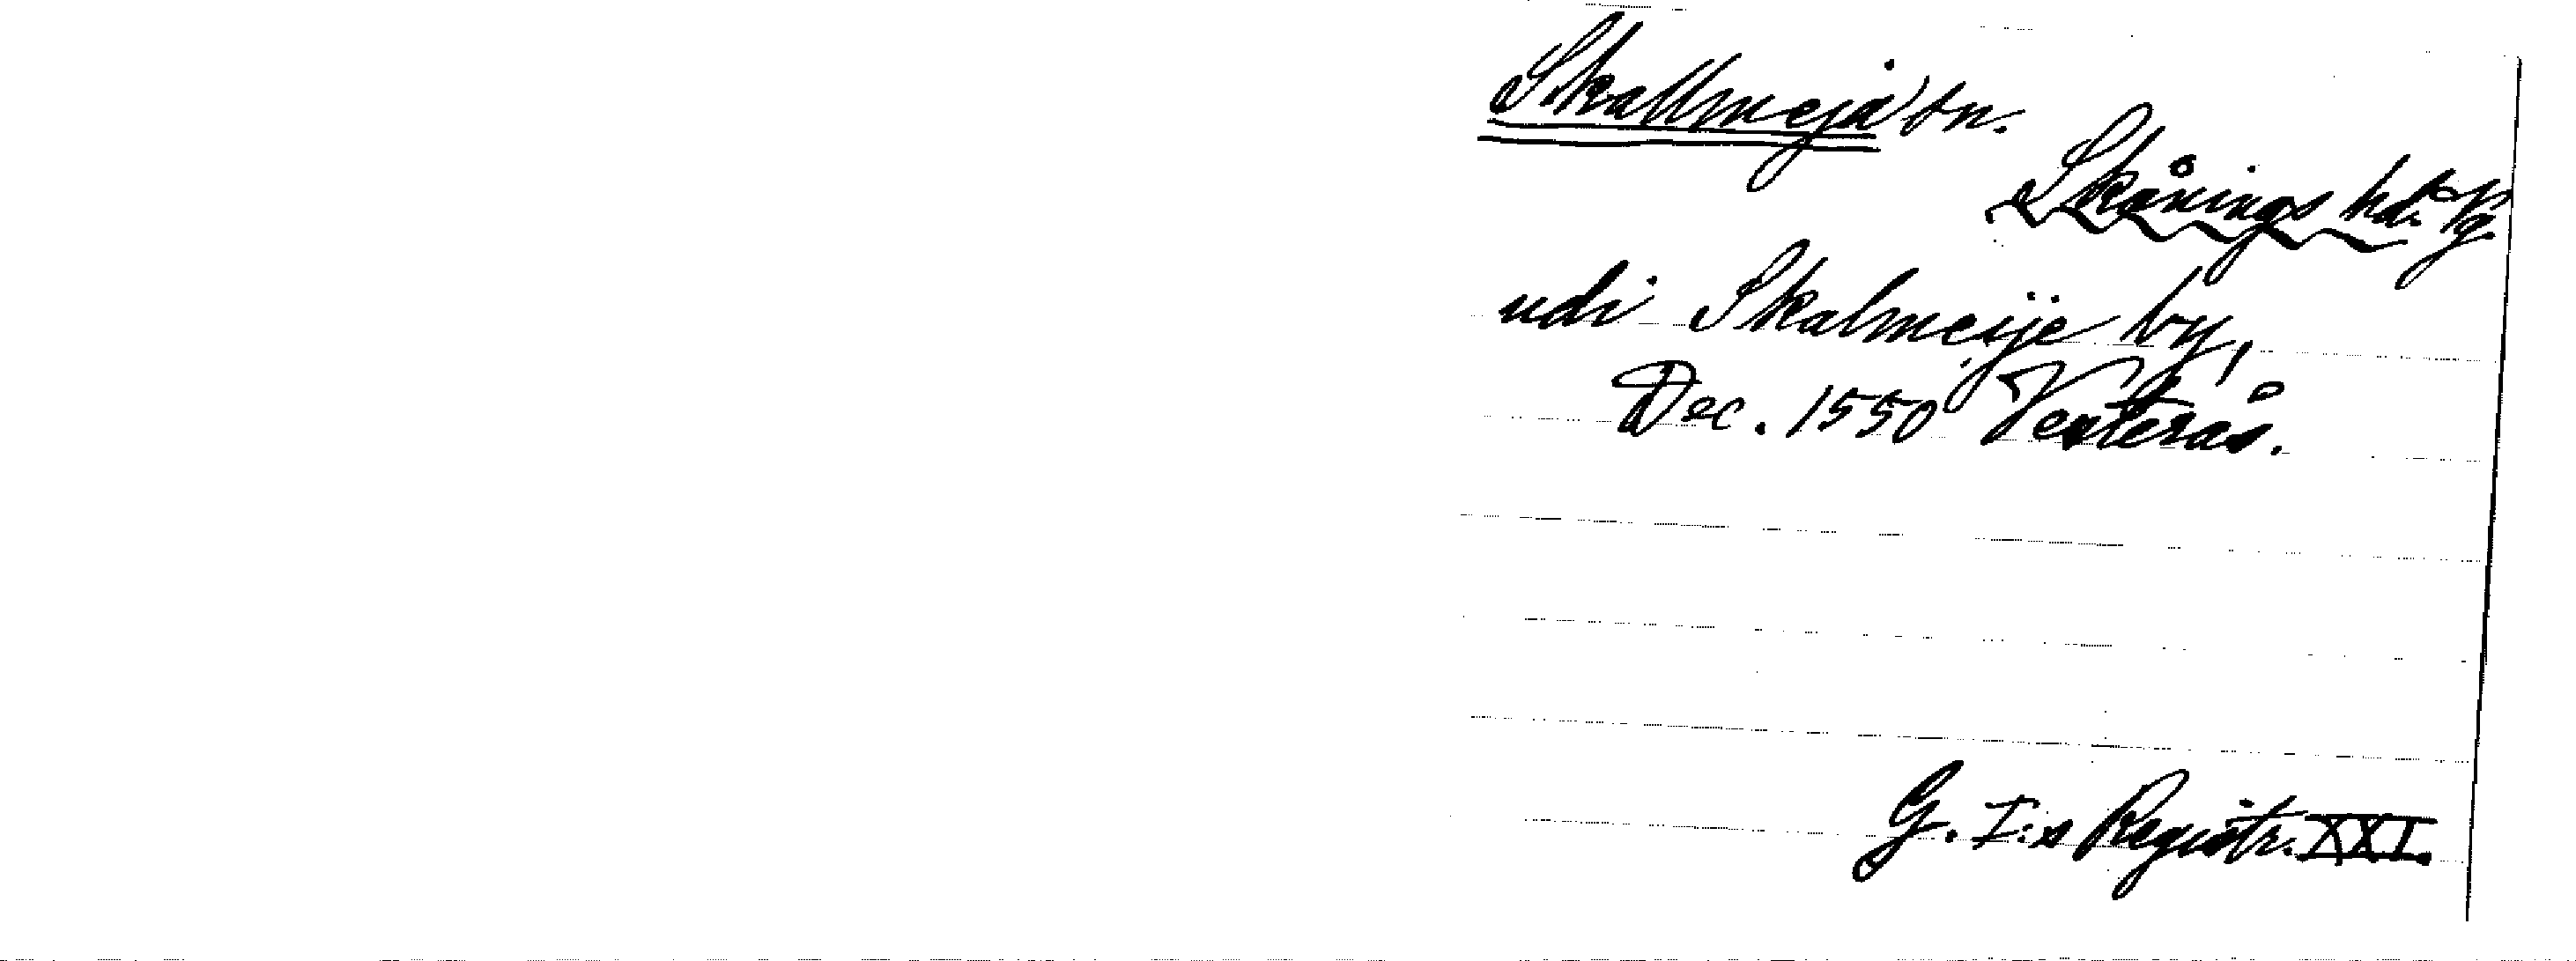 Skallmeja sn.
Skånings hd. Vg.
udi Skalmeije by,
Dec. 1550 Vesterås.
G. I:s Registr. XXI.